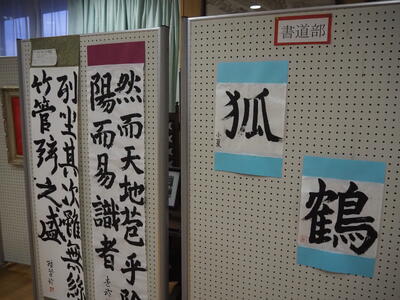 書道部
狐
小夏
鶴
然而天地苞乎陰
陽而易識者
列坐其次雖無絲
竹管弦之盛